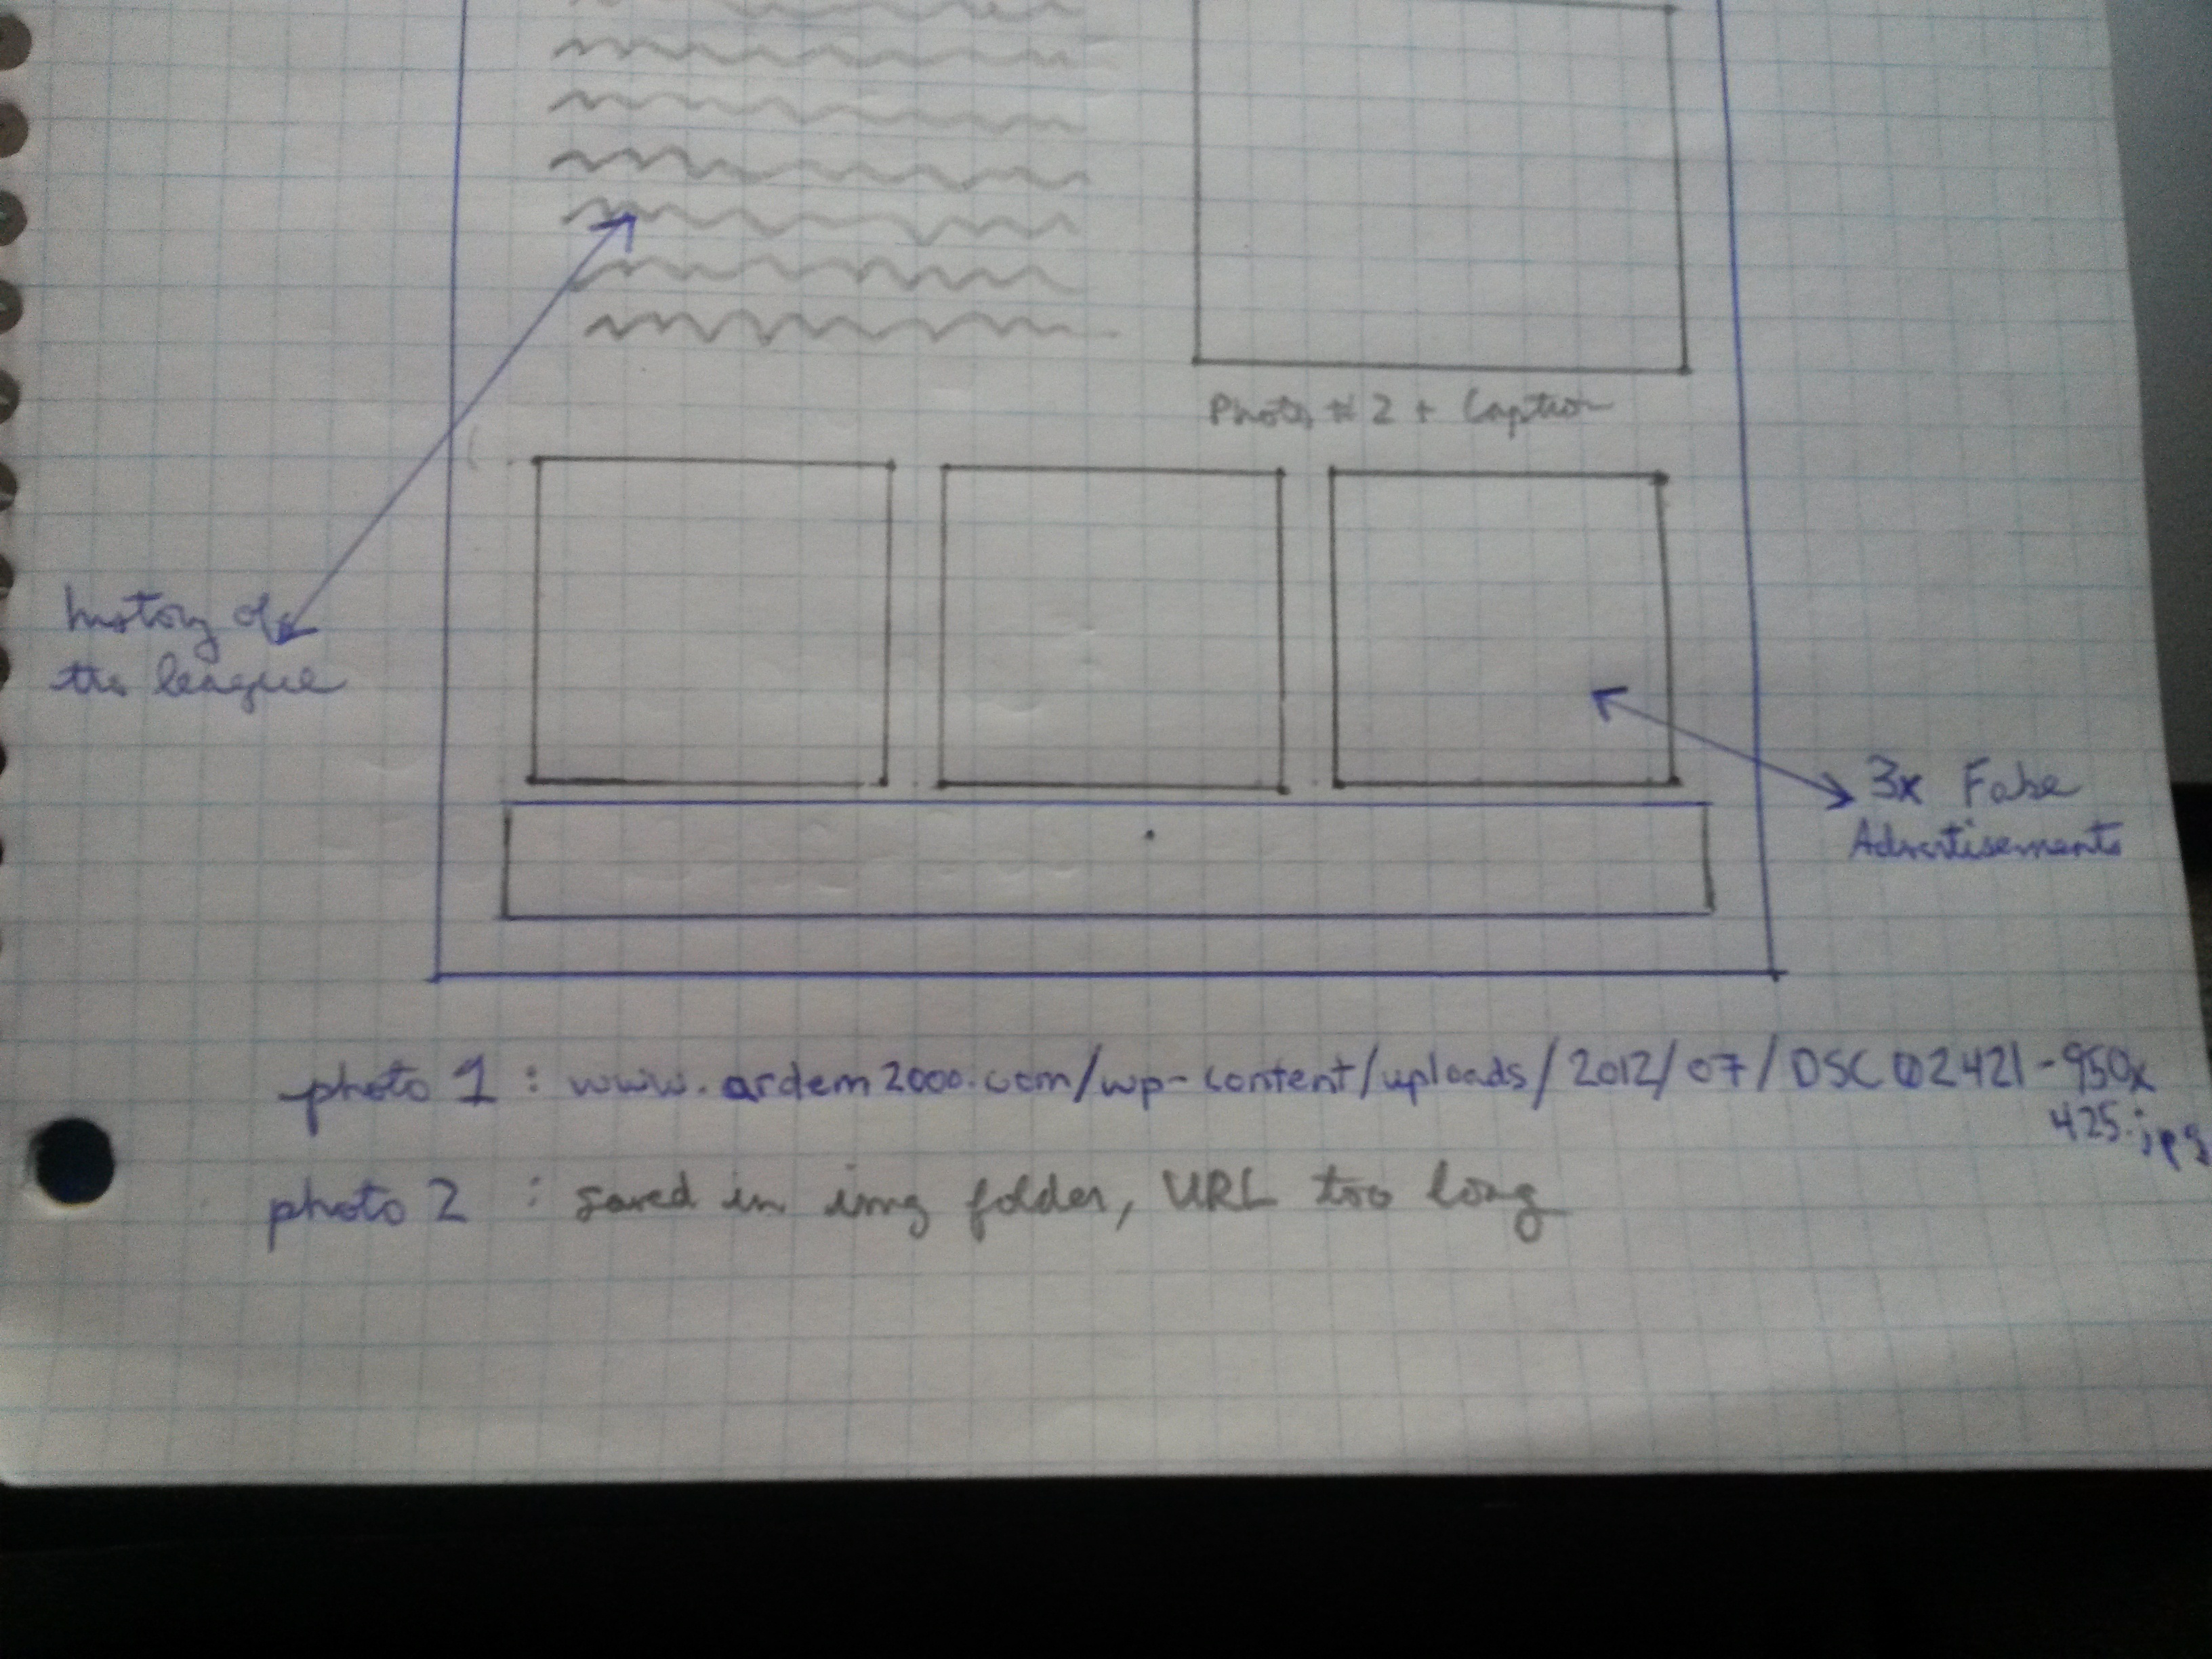 history of
the league
Photo # 2 + Caption
3x False
Advertisements
photo 1 : www.ardem2000.com/wp-content/uploads/2012/07/DSC02421-950x
425.jpg
photo 2 : saved in img folder, URL too long